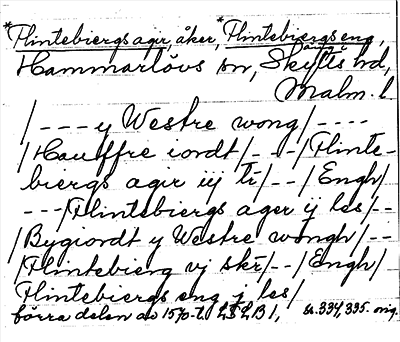 *Flintebiergs agir, åker, *Flintebiergs eng, äng
Hammarlövs sn, Skytts hd,
Malm. l
/--- y Westre wong/----
/Hauffre iordt/---/Flinte-
biergs agir iij tr/--/Engh/
---/Flintebiergs ager ij les/--
/Bygiordt y Westre wongh/--
/Flintebierg vj skr/--/Engh/
Flintebiergs eng j les/
förra delen av 1570-t. LSLB1, s. 334, 335. orig.